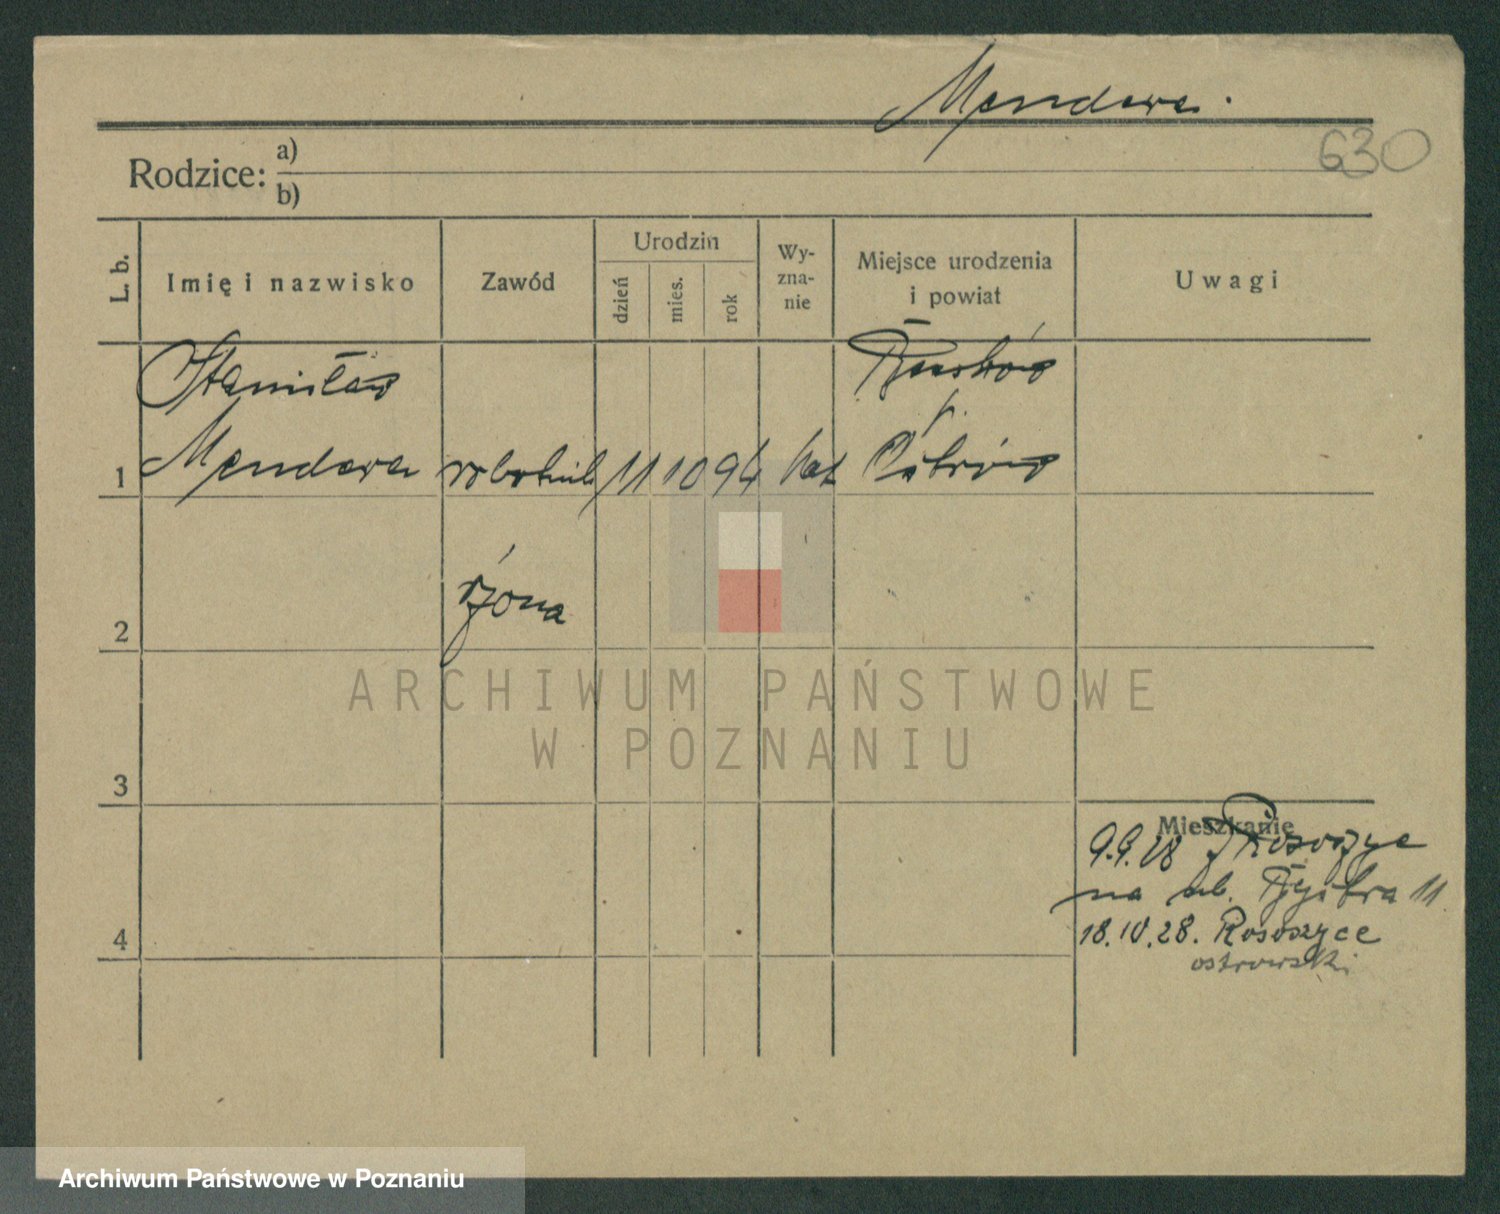 Mendera.
630
Rodzice: a)
b)
L. b.
Imię i nazwisko
Zawód
Urodzin
dzień
mies.
rok
Wy-
zna-
nie
Miejsce urodzenia
i powiat
Uwagi
Stanisław
Mendera
1
robotnik
11
10
94
kat
p.
Ostrów
2
żona
3
Mieszkanie
9.9.28
na ul. Bystra 11
18.IV.28. Rososzyce
ostrowski
4
ARCHIWUM PAŃSTWOWE
W POZNANIU
Archiwum Państwowe w Poznaniu